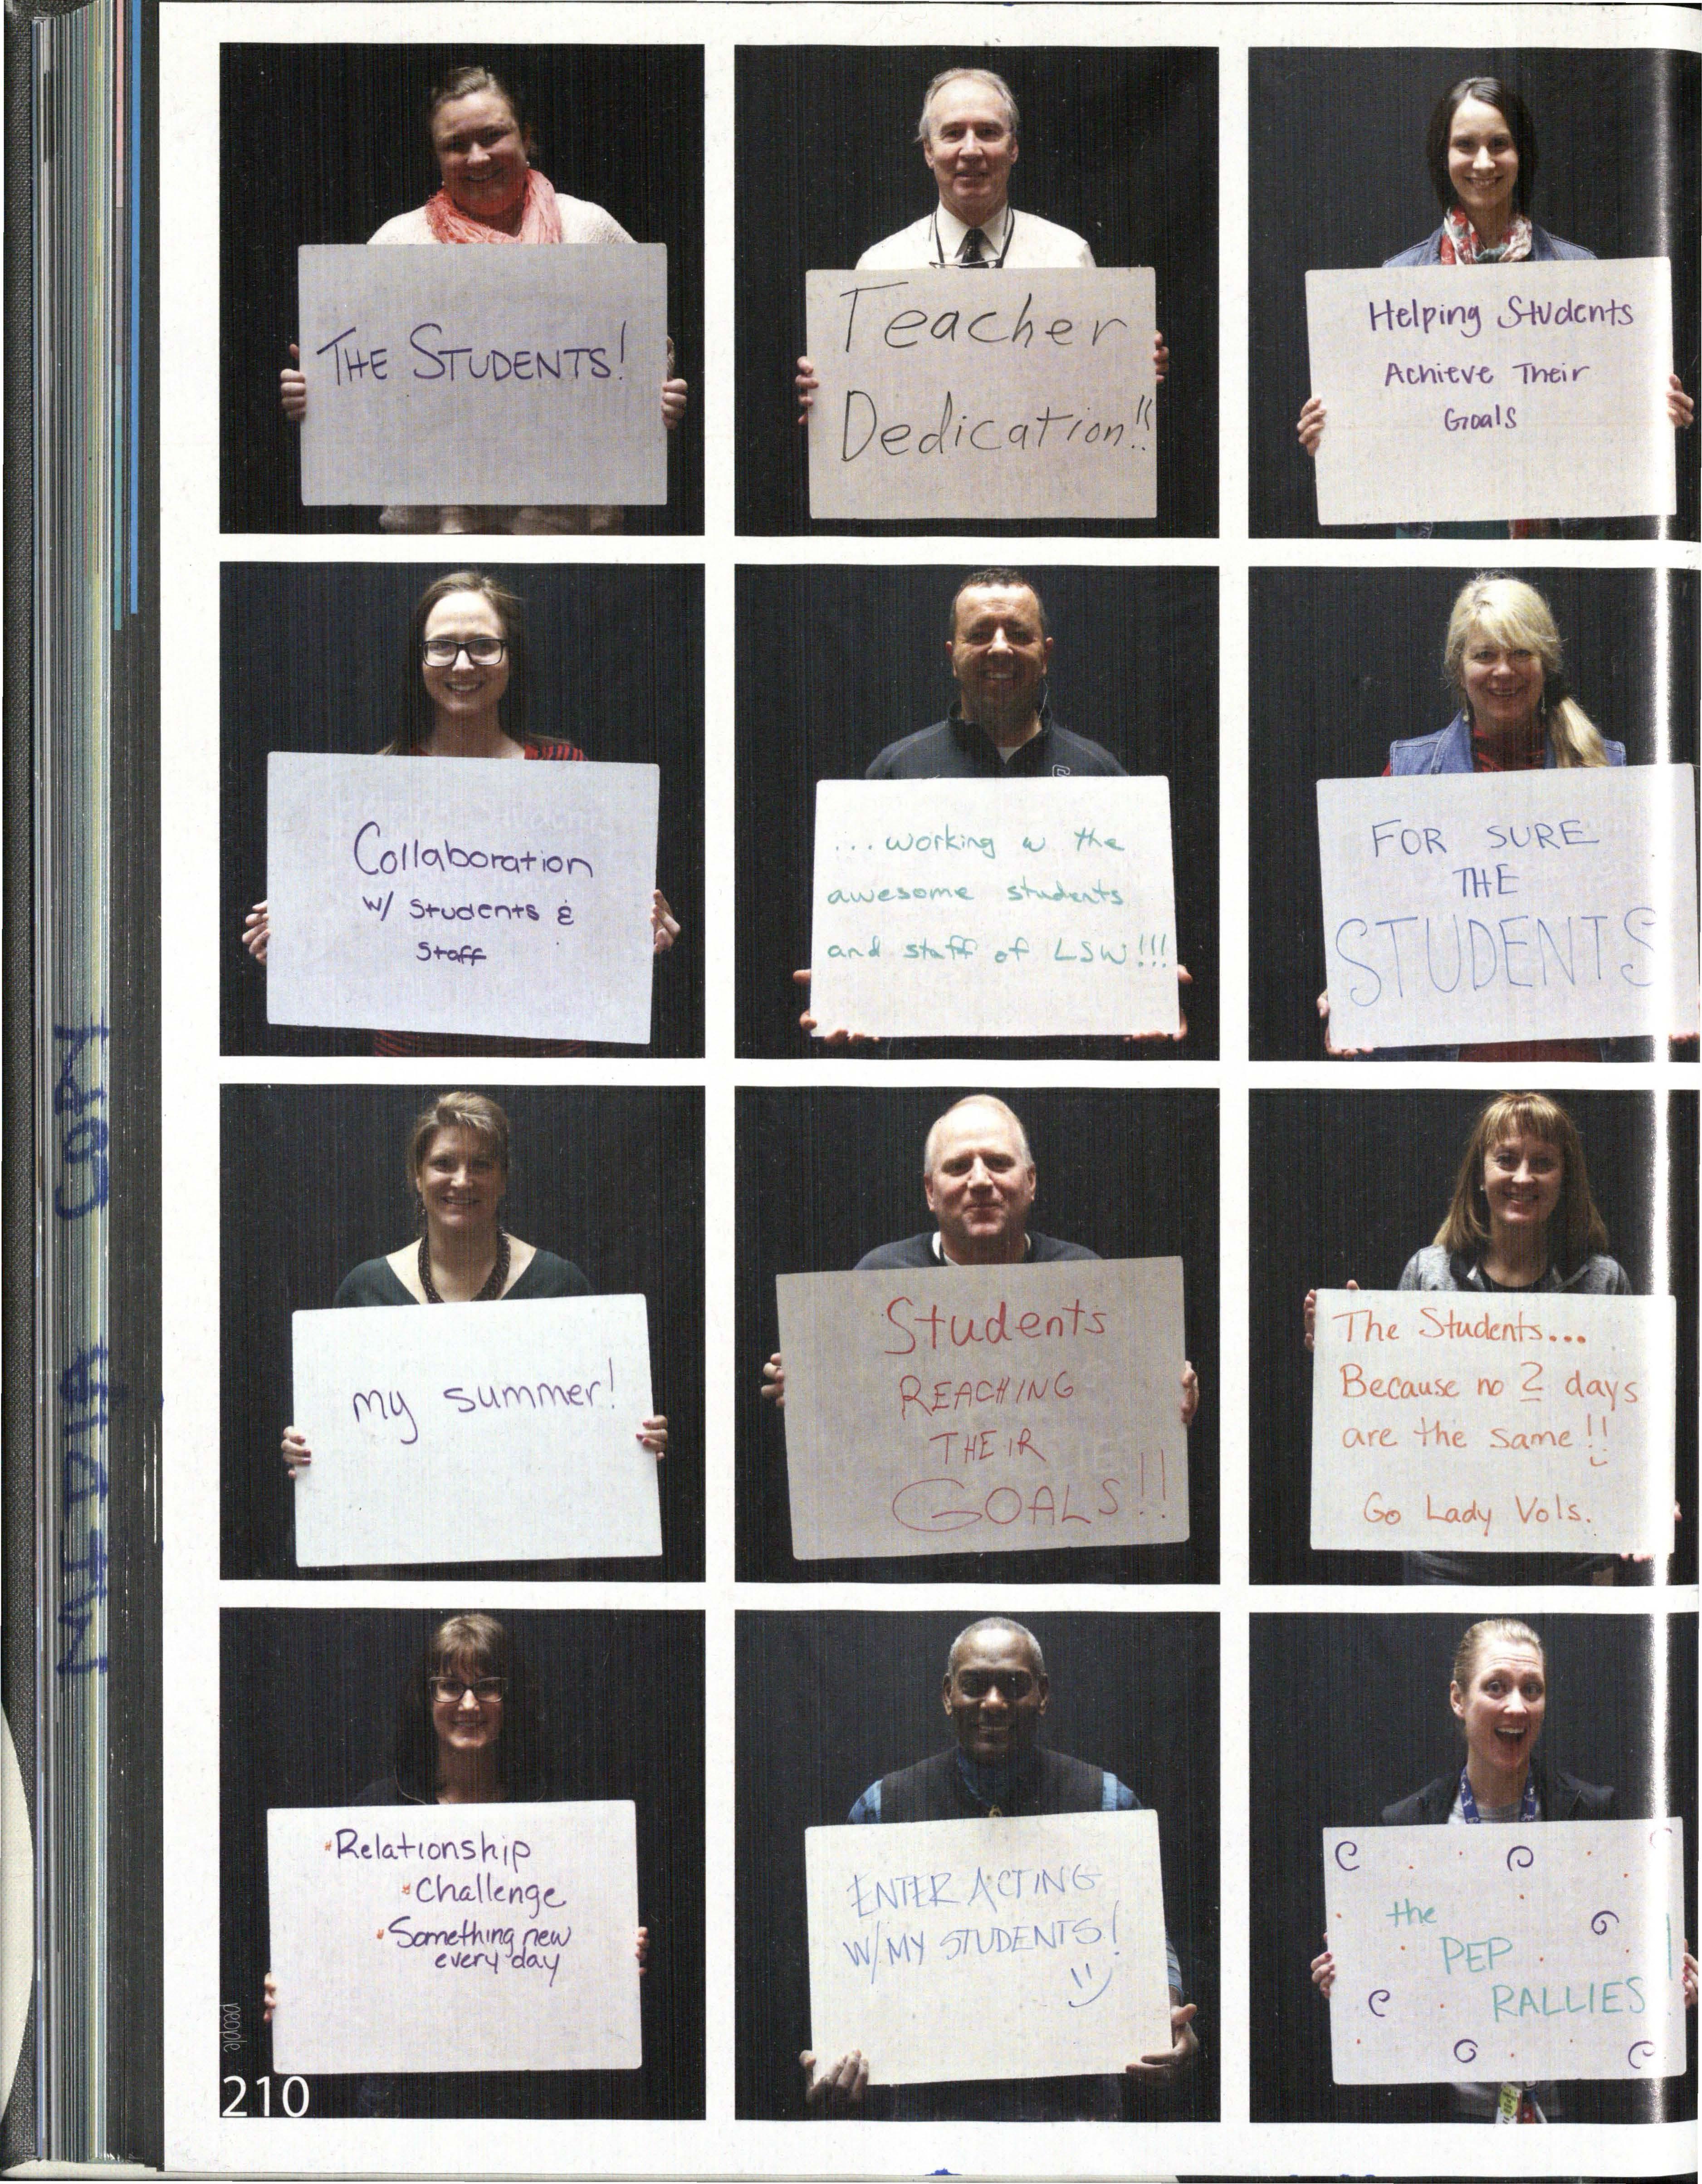 THE STUDENTS!
Teacher
Dedication!!
Helping Students
Achieve Their
Goals
Collaboration
w/ Students &
Staff
...working w the
awesome students
and staff of LSW!!!
FOR SURE
THE
STUDENTS
my summer!
Students
REACHING
THEIR
GOALS!!
The Students...
Because no 2 days
are the same!!
Go Lady Vols.
*Relationship
*Challenge
*Something new
every day
ENTER ACTING
W/ MY STUDENTS!
the
PEP
RALLIES!
people
210
MEDIA COPY